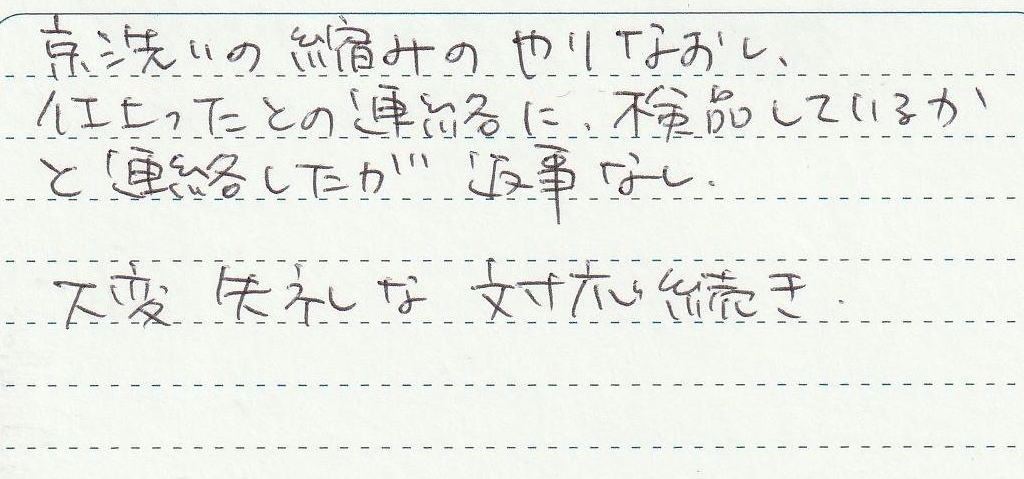 京洗いの縮みのやりなおし、
仕上ったとの連絡に、検品しているか
と連絡したが返事なし.
大変失礼な対応続き.